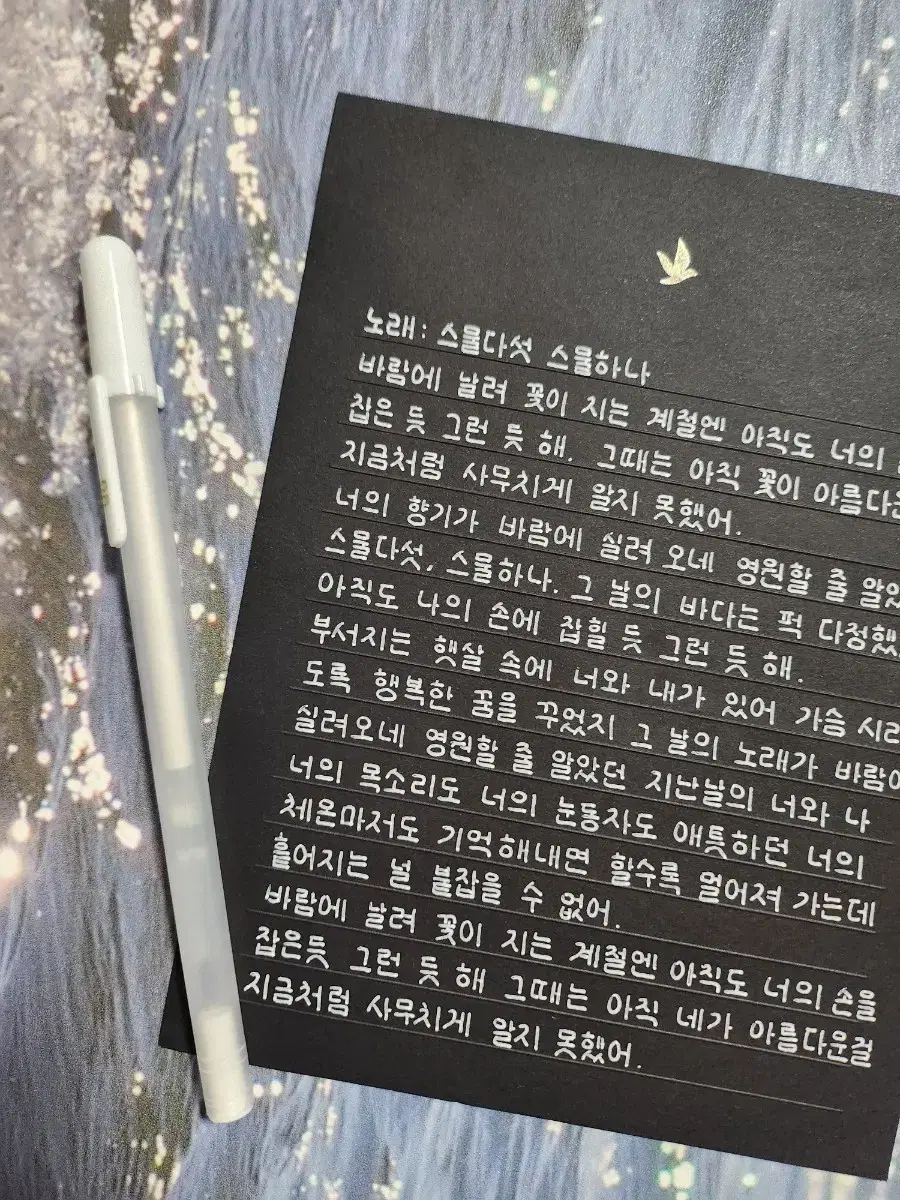 노래: 스물다섯 스물하나
바람에 날려 꽃이 지는 계절엔 아직도 너의
잡은 듯 그런 듯 해. 그때는 아직 꽃이
지금처럼 사무치게 알지 못했어.
너의 향기가 바람에 실려 오네 영원할 줄
스물다섯, 스물하나. 그 날의 바다는 퍽
아직도 나의 손에 잡힐 듯 그런 듯 해.
부서지는 햇살 속에 너와 내가 있어 가슴
도록 행복한 꿈을 꾸었지 그 날의 노래가
실려오네 영원할 줄 알았던 지난날의 너와 나
너의 목소리도 너의 눈동자도 애틋하던 너의
체온마저도 기억해내면 할수록 멀어져 가는데
흩어지는 널 붙잡을 수 없어.
바람에 날려 꽃이 지는 계절엔 아직도 너의 손을
잡은듯 그런 듯 해 그때는 아직 네가 아름다운걸
지금처럼 사무치게 알지 못했어.